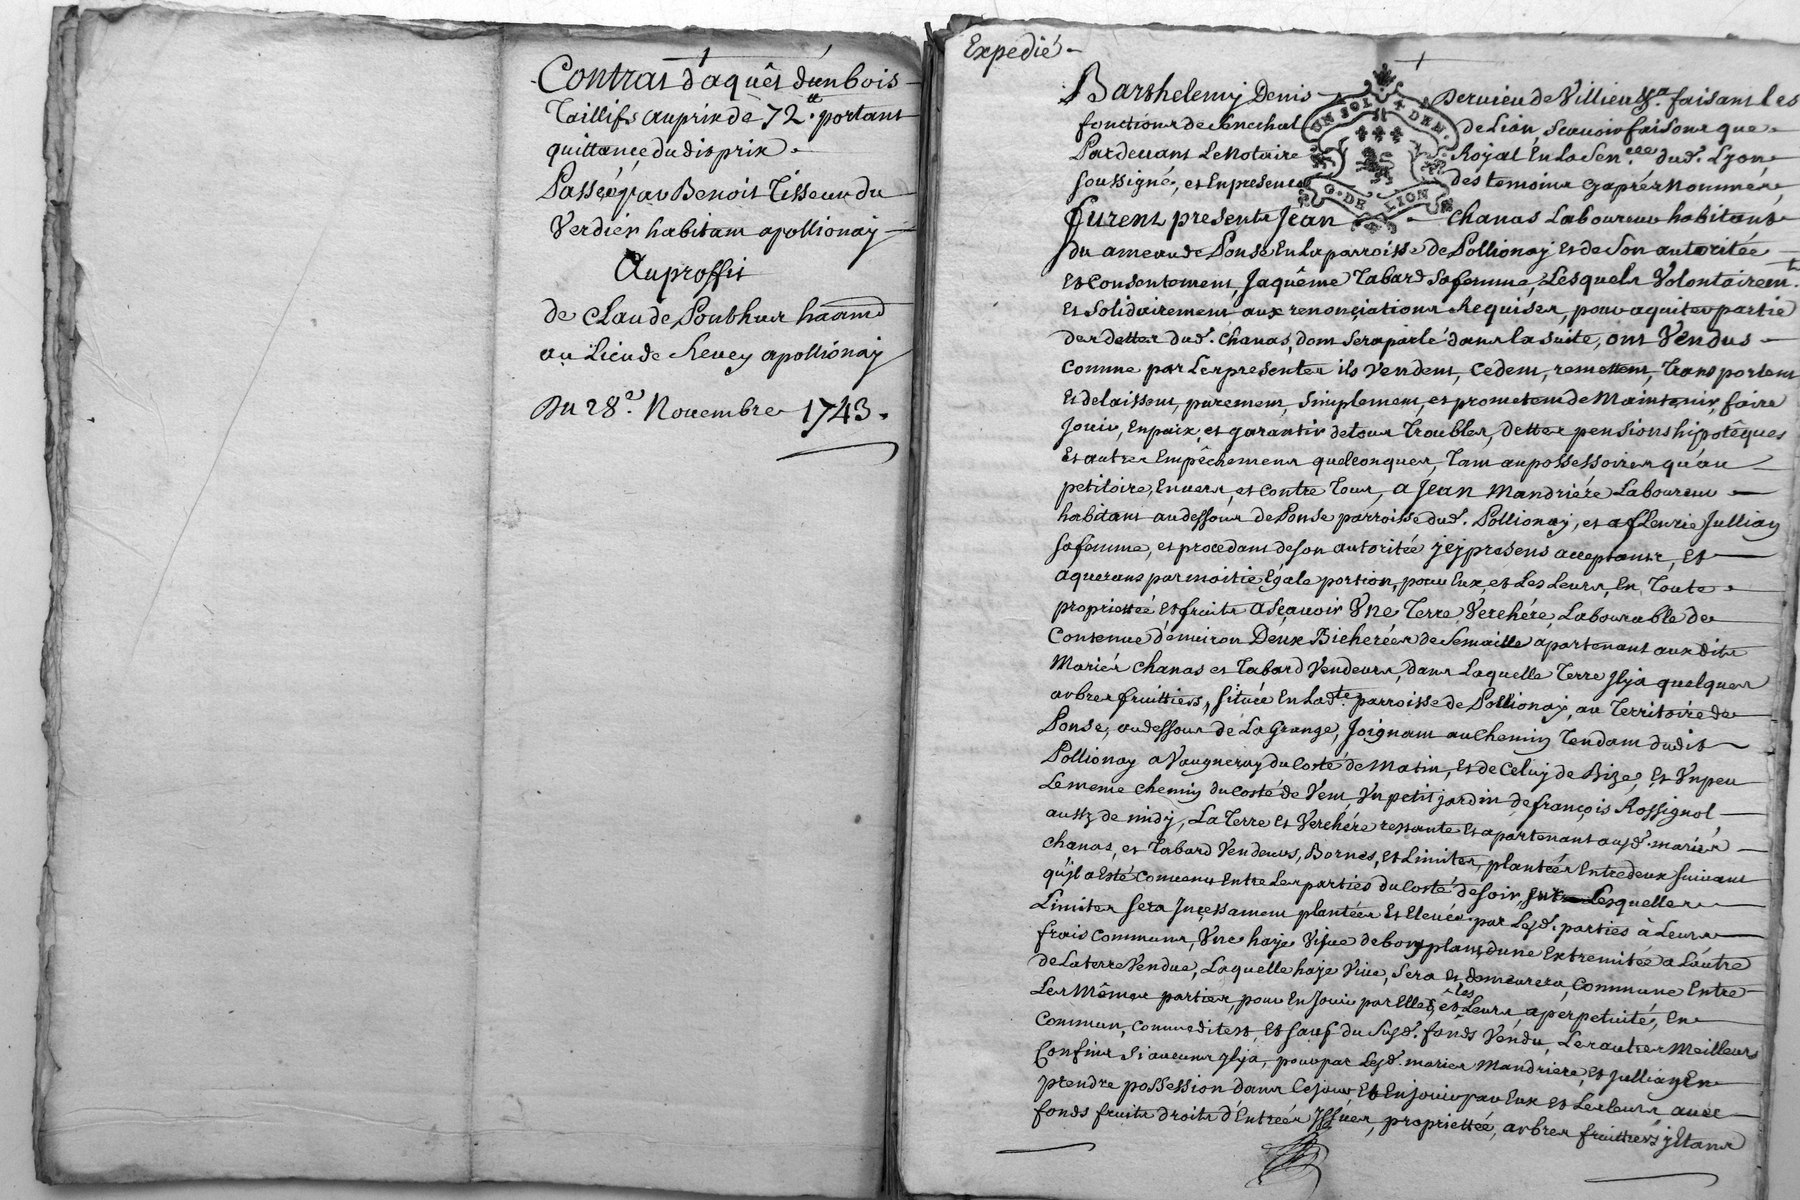 Contrat d'aquêt d'un bois
Taillifs au prix de 72.tt portant
quittance du dit prix.
Passé par Benoit Tisseur du
Verdier habitant apollionay
Au proffit
de Claude Ponthus
au Lieu de Revey apollionay
Du 28.e Novembre 1743.
Expedié
Barthelemy Denis Dervieu de Villieu faisant les
fonctions de Senechal de Lion Scavoir faisons que
Pardevant Le Notaire Royal En La Sen.cee dud. Lyon
soussigné, et En presence des temoins cy aprés Nommés,
UN SOL 4 DEN.
G. DE LION
furent presents Jean Chanas Laboureur habitant
du ameau de Ponse En La parroisse de Pollionay et de Son autoritée
et consentement, Jaquême Tabard Sa femme, Lesquels Volontairem.t
et Solidairement aux renonciations Requises, pour aquiter partie
des dettes dud. Chanas, dont Sera parlé dans la suite, ont Vendus
comme par Les presentes ils vendent, cedent, remettent, Transportent
et delaissent, purement, Simplement, et prometent de Maintenir, faire
Jouir, En paix, et garantir de tous Troubles, dettes pensions hipotêques
et autres Empêchements quelconques, Tant au possessoires qu'au
petitoire, Envers, et contre Tous, a Jean Mandriére Laboureur
habitant au dessous de Ponse parroisse dud. Pollionay, et a fleurie Jullian
sa femme, et procedant de son autoritée jcy presens acceptants, et
aquerans par moitie Egale portion, pour Eux, et Les Leurs, En Toute
propriettée et fruits a Sçavoir Une Terre, Verchére, Labourable de
Contenue d'environ Deux Bicherées de Semaille apartenant aux dits
Mariés Chanas et Tabard Vendeurs, dans Laquelle Terre jlya quelques
arbres fruittiers, située En Lad.te parroisse de Pollionay, au Territoire de
Ponse, au dessous de La Grange, Joignant au Chemin Tendant dudit
Pollionay a Vaugneray du Costé de Matin, et de Celuy de Bize, et Un peu
Le meme chemin du costé de Vent, Un petit jardin de françois Rossignol
aussy de midy, La Terre et Verchére restante et apartenant ausd. mariés
Chanas, et Tabard Vendeurs, Bornes, et Limites, plantées Entre deux suivant
qu'jl a Esté Convenu Entre Les parties du Costé de soir, Lesquelles
Limites sera Incessament plantée et Elevée par Lesd. parties à Leurs
frais communs, Une haye Vifve de bon plant d'une Extremitée a Lautre
de La terre Vendue, Laquelle haje Vive, sera et demeurera, Commune Entre
Les Mêmes parties, pour En Jouir par Elles, et les Leurs, a perpetuité, En
commun, et sauf du Susd. fonds Vendu, Les autres Meilleurs
Confins Si aucuns jlya, pour par Lesd. mariés Mandriere, et Jullian En
prendre possession dans ce jour et En jouir par Eux et Les leurs avec
fonds fruits droits d'Entrées Issues, propriettée, arbres fruittiers y Etans